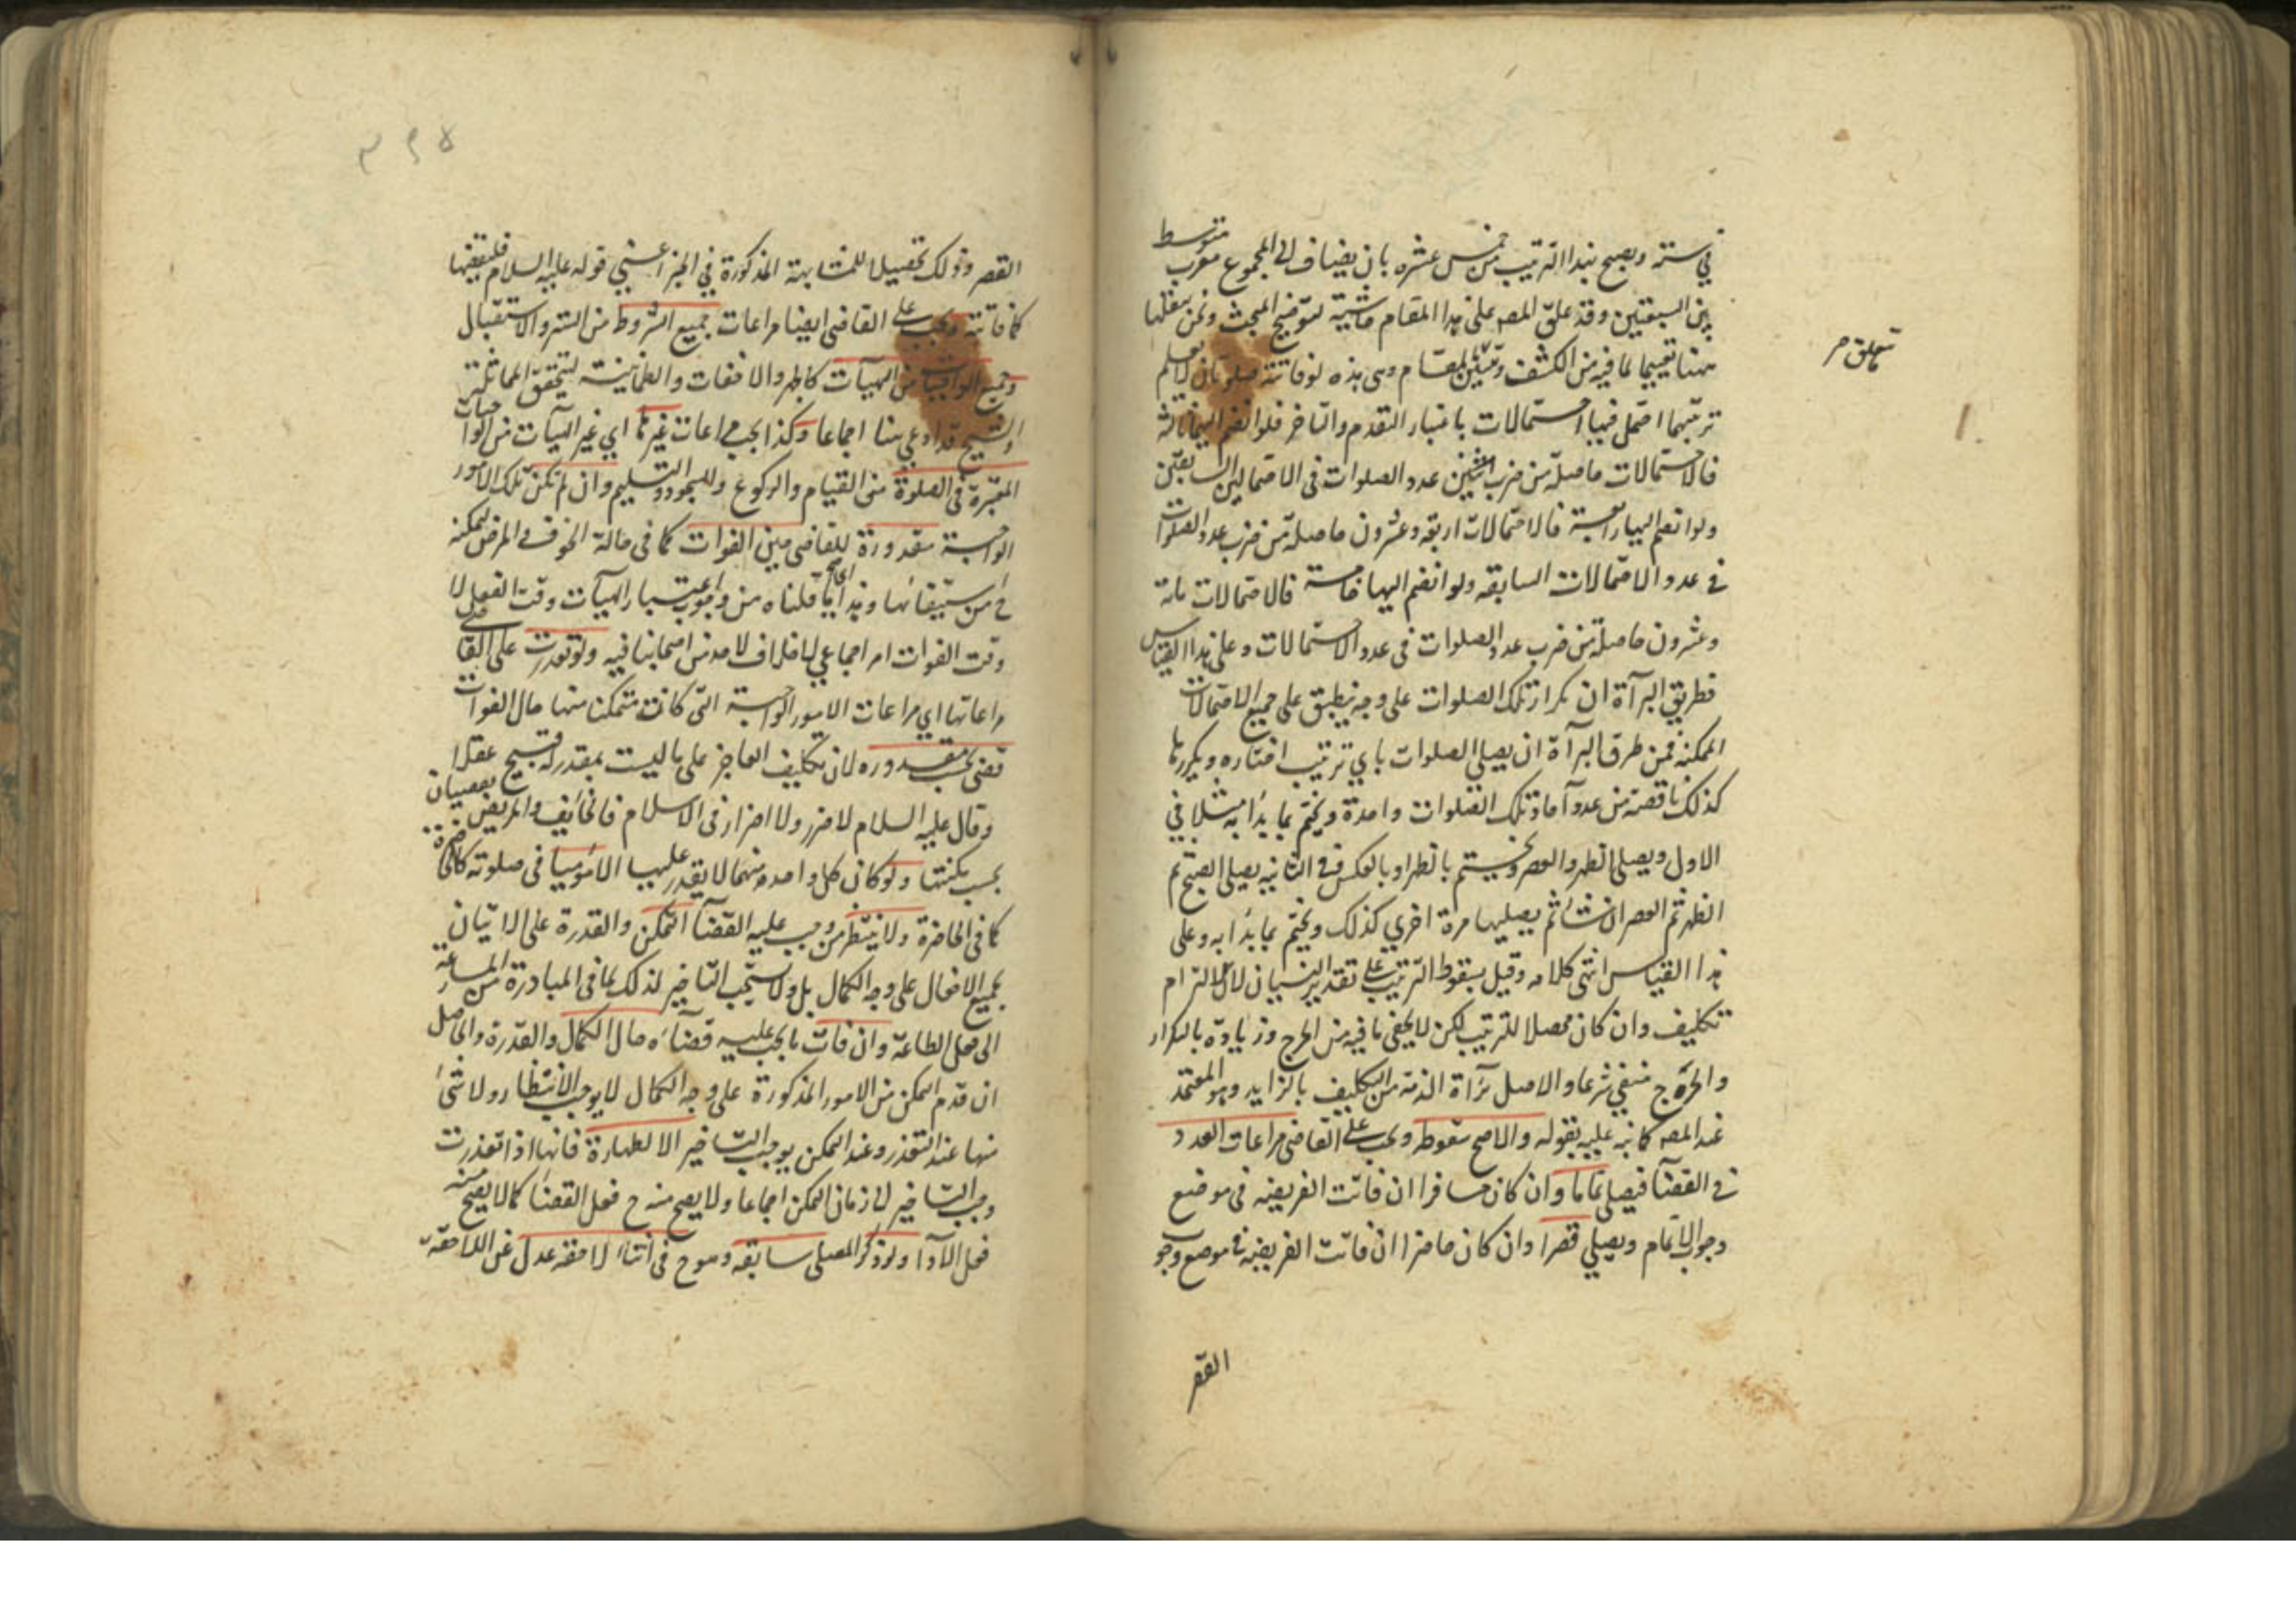 في ستة ويصح بهذا الترتيب من خمس عشره بان يضاف الى المجموع مغرب متوسط
بين السبقتين وقد علق المص على هذا المقام حاشية لتوضيح المبحث ونحن ننقلها
ههنا تتميما لما فيه من الكشف وتبيين المقام وهي هذه لو فاتته صلوتان لم يعلم
ترتيبهما احتمل فيها احتمالات باعتبار التقدم والتاخر فلو انضم اليهما ثالثة
فالاحتمالات حاصلة من ضرب عدد الصلوات في الاحتمالين السابقين
ولو انضم اليها رابعة فالاحتمالات اربعة وعشرون حاصلة من ضرب عدد الصلوات
في عدد الاحتمالات السابقه ولو انضم اليها خامسة فالاحتمالات مائة
وعشرون حاصلة من ضرب عدد الصلوات في عدد الاحتمالات وعلى هذا القياس
فطريق البرآة ان يكرر تلك الصلوات على وجه ينطبق على جميع الاحتمالات
الممكنة فمن طرق البرآة ان يصلي الصلوات باي ترتيب اختاره ويكررها
كذلك ناقصة من عدد آحاد تلك الصلوات واحدة ويختم بما بدأ به مثلا في
الاول ويصلي الظهر والعصر ويختم بالظهر او بالعكس وفي الثانيه يصلي الصبح ثم
الظهر ثم العصر ان شاء ثم يصليها مرة اخري كذلك ويختم بما بدأ به وعلى
هذا القياس انتهى كلامه وقيل بسقوط الترتيب على تقدير النسيان لان الالتزام
تكليف وان كان محصلا للترتيب لكن لا يخفى ما فيه من الحرج وزيادة بالتكرار
والحرج منفي شرعا والاصل برآة الذمة من التكليف بالزايد وهو المعتمد
عند المص كما نبه عليه بقوله والاصح سقوطه ويجب على القاضي مراعات العدد
في القضآ فيصلي تماما وان كان مسافرا ان فاتت الفريضه في موضع
وجوب الاتمام ويصلي قصرا وان كان حاضرا ان فاتت الفريضه في موضع وجوب
القصر
تعلق مر
القصر وذلك تحصيلا للمشابهة المذكورة في الخبر اعني قوله عليه السلام فليقضها
كما فاتته ويجب على القاضي ايضا مراعات جميع الشروط من الستر والاستقبال
وجميع الواجبات من الهيآت كالجهر والاخفات والطمانينة ليتحقق المماثلة
والشيخ قد ادعي هنا اجماعا وكذا يجب مراعات غيرها اي غير الهيآت من الواجبات
المعتبرة في الصلوة من القيام والركوع والسجود والتسليم وان لم تكن تلك الامور
الواجبة مقدورة للقاضي حين الفوات كما في حالة الخوف والمرض لتمكنه
ح من استيفائها وهذا اي ما قلناه من وجوب اعتبار الهيآت وقت الفعل لا
وقت الفوات امر اجماعي لا خلاف لاحد من اصحابنا فيه ولو تعذرت على القاضي
مراعاتها اي مراعات الامور الواجبة التي كانت متمكنا منها حال الفوات
قضى بحسب مقدوره لان تكليف العاجز على ما ليست بمقدرته قبيح عقلا
وقال عليه السلام لا ضرر ولا اضرار في الاسلام فالخائف والمريض يقضيان
بحسب مكنتها ولو كان كل واحد منهما لا يقدر عليها الا موميا في صلوته كالحاضرة
كما في الحاضرة ولا ينتظر من وجب عليه القضآ التمكن والقدرة على الاتيان
بجميع الافعال على وجه الكمال بل ولا يستحب التاخير لذلك لما في المبادرة من المسارعة
الى فعل الطاعة وان فات ما يجب عليه قضآئه حال الكمال والقدرة والحاصل
ان تقدم التمكن من الامور المذكورة على وجه الكمال لا يوجب الانتظار ولا شئ
منها عند التعذر وعند التمكن يوجب التاخير الا الطهارة فانها اذا تعذرت
وجب التاخير لازمان التمكن اجماعا ولا يصح منه ح فعل القضآ كما لا يصح منه
فعل الآدا ولو ذكر المصلي سابقه وهو ح في اثناء لاحقه عدل عن اللاحقة